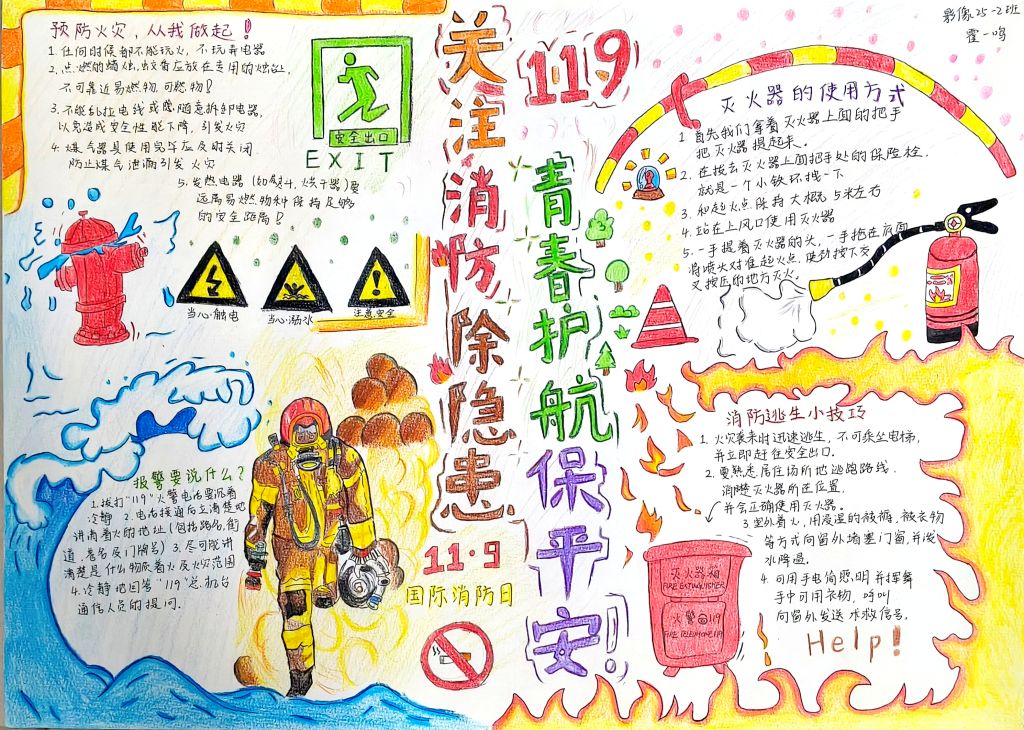 影像25-2班
霍一鸣
关注消防除隐患
119
青春护航保平安!
预防火灾,从我做起!
1.任何时候都不能玩火,不玩弄电器
2.点燃的蜡烛,蚊香应放在专用的烛台,
不可靠近易燃物,可燃物!
3.不能乱拉电线或随意拆卸电器,
以免造成安全性能下降,引发火灾
4.煤气器具使用完毕应及时关闭
防止煤气泄漏引发火灾
5.发热电器(如射灯,烘干器)要
远离易燃物和保持足够
的安全距离!
安全出口
EXIT
当心·触电
当心·溺水
注意安全
报警要说什么?
1.拨打"119"火警电话要沉着
冷静 2.电话接通后立清楚地
讲清着火的地址(包括路名,街
道,巷名及门牌号)3.尽可能讲
清楚是什么物质着火及火灾范围
4.冷静地回答"119"总机台
通信人员的提问.
11·9
国际消防日
灭火器的使用方式
1.首先我们拿着灭火器上面的把手
把灭火器提起来.
2.在拔去灭火器上面把手处的保险栓,
就是一个小铁环拽一下
3.和起火点保持大概5米左右
4.站在上风口使用灭火器
5.一手提着灭火器的头,一手抱在底面
将喷火对准起火点,使劲按下交
叉按压的地方灭火.
消防逃生小技巧
1.火灾袭来时迅速逃生,不可乘坐电梯,
并立即赶往安全出口.
2.要熟悉居住场所地逃跑路线,
消楚灭火器所在位置,
并会正确使用灭火器.
3.室外着火,用浸湿的被褥,被衣物
等方式向窗外堵塞门窗,并泼
水降温.
4.可用手电筒照明并挥舞
手中可用衣物,呼叫
向窗外发送求救信号.
Help!
灭火器箱
FIRE EXTINGUISHER
火警119
FIRE TELEPHONE 119